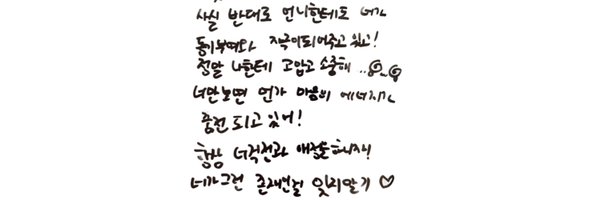 사실 반대로 언니한테도 너가
동기부여와 자극이되어주고 있고!
정말 나한테 고맙고 소중해..
너만보면 언가 마음이 에너지가
충전되고 있어!
항상 너걱전과 애정을하니까!
너가그런 존재인걸 잊지말기 ♡